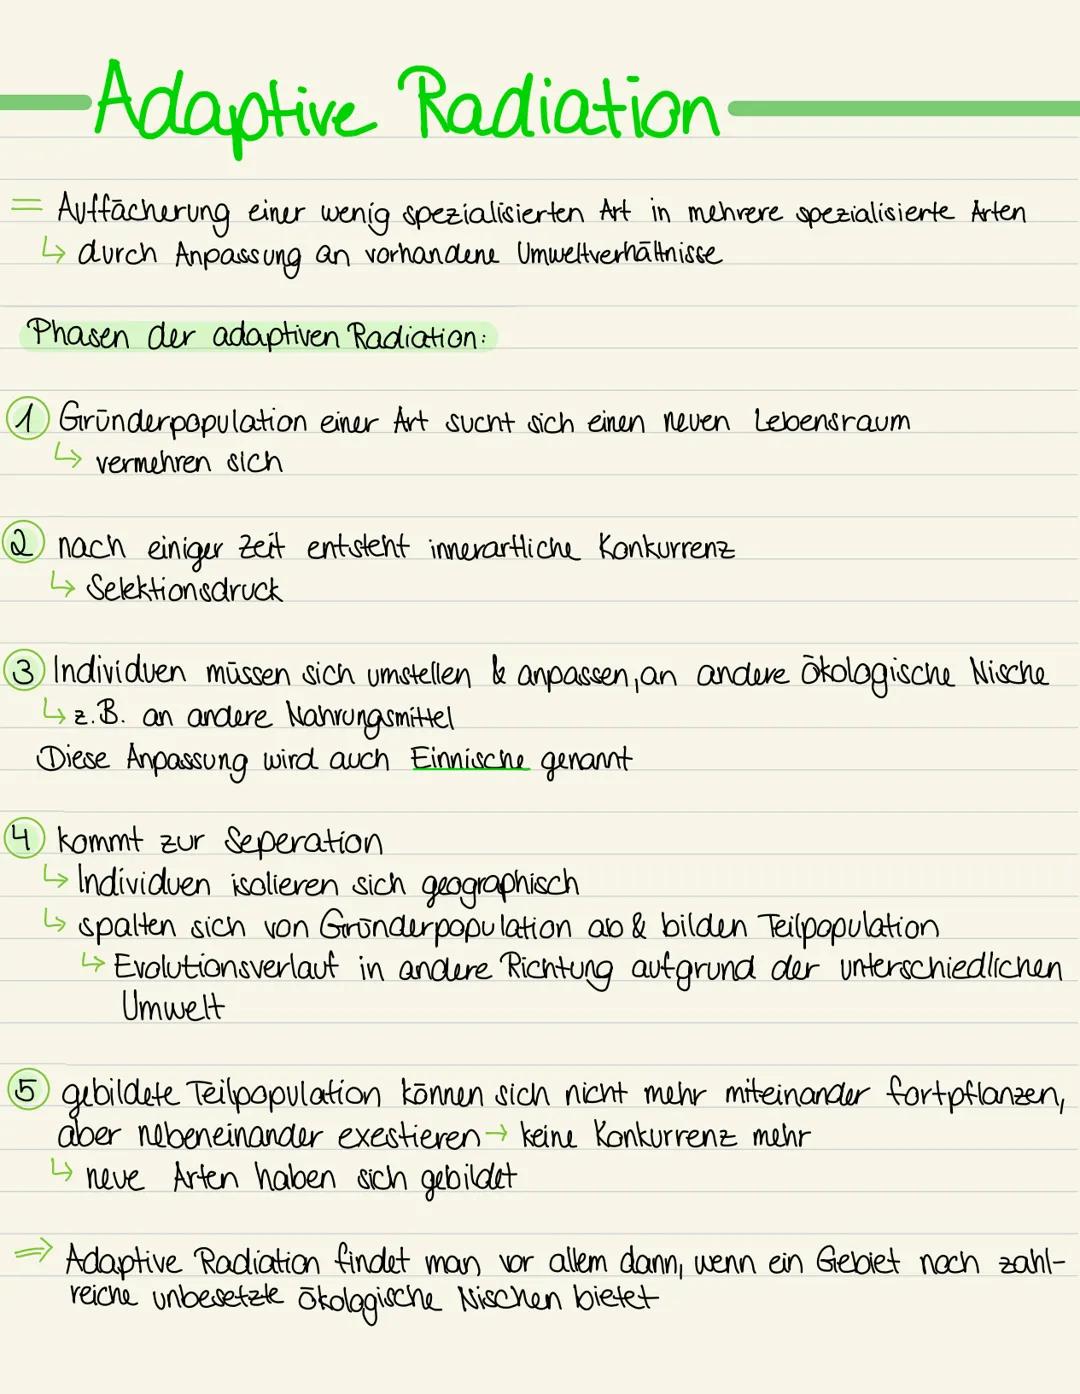 Adaptive Radiation
= Auffächerung einer wenig spezialisierten Art in mehrere spezialisierte Arten
↳ durch Anpassung an vorhandene Umweltverhältnisse
Phasen der adaptiven Radiation:
1 Gründerpopulation einer Art sucht sich einen neuen Lebensraum
↳ vermehren sich
2 nach einiger Zeit entsteht innerartliche Konkurrenz
↳ Selektionsdruck
3 Individuen müssen sich umstellen & anpassen, an andere ökologische Nische
↳ z.B. an andere Nahrungsmittel
Diese Anpassung wird auch Einnische genannt
4 kommt zur Seperation
↳ Individuen isolieren sich geographisch
↳ spalten sich von Gründerpopulation ab & bilden Teilpopulation
↳ Evolutionsverlauf in andere Richtung aufgrund der unterschiedlichen
Umwelt
5 gebildete Teilpopulation können sich nicht mehr miteinander fortpflanzen,
aber nebeneinander exestieren → keine Konkurrenz mehr
↳ neue Arten haben sich gebildet
⇒ Adaptive Radiation findet man vor allem dann, wenn ein Gebiet noch zahl-
reiche unbesetzte ökologische Nischen bietet